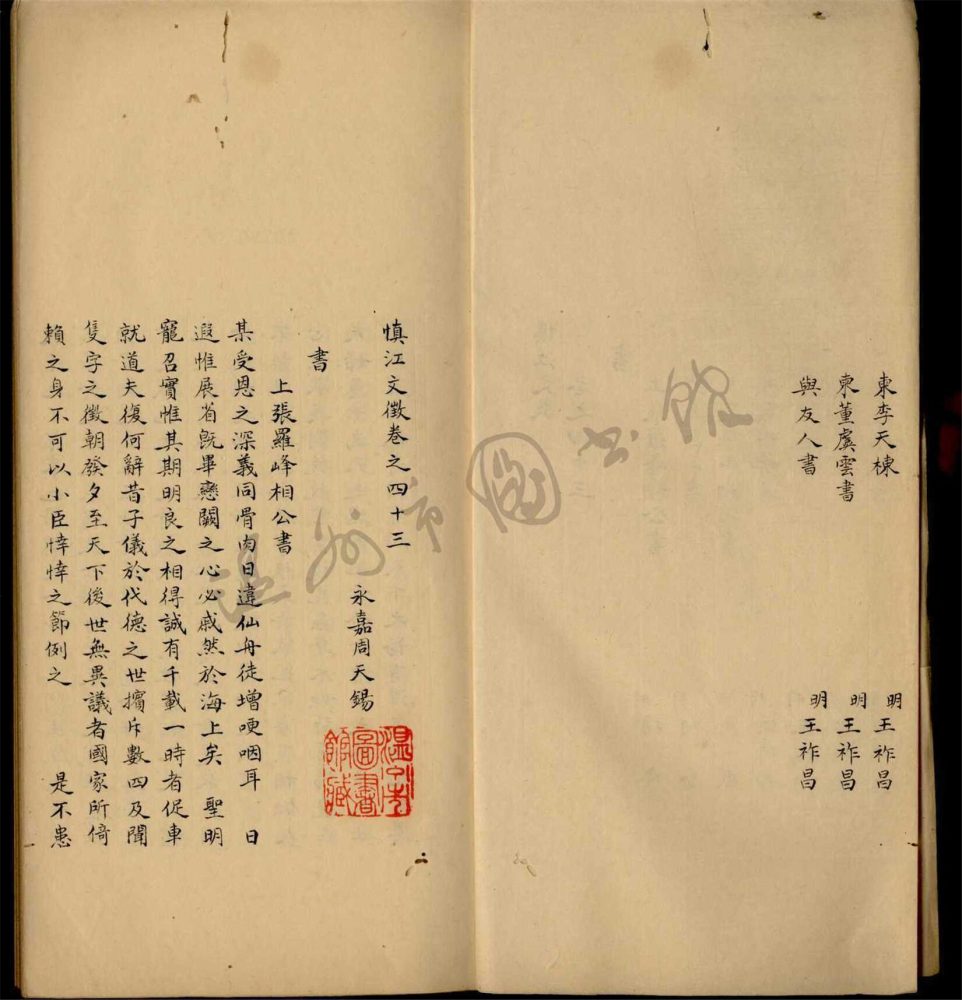 柬李天棟 明王祚昌
柬董虞雲書 明王祚昌
與友人書 明王祚昌
慎江文徵卷之四十三
永嘉周天錫
書
上張羅峰相公書
某受恩之深義同骨肉日違仙舟徒增哽咽耳 日
遐惟展省既畢戀闕之心必戚然於海上矣 聖明
寵召實惟其期明良之相得誠有千載一時者促車
就道夫復何辭昔子儀於代德之世擯斥數四及聞
隻字之徵朝發夕至天下後世無異議者國家所倚
賴之身不可以小臣悻悻之節例之 是不患
溫州市圖書館藏
溫州市圖書館